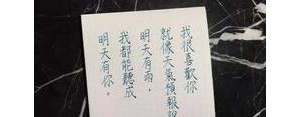 我很喜歡你
就像天氣預報說
明天有雨，
我都能聽成
明天有你。